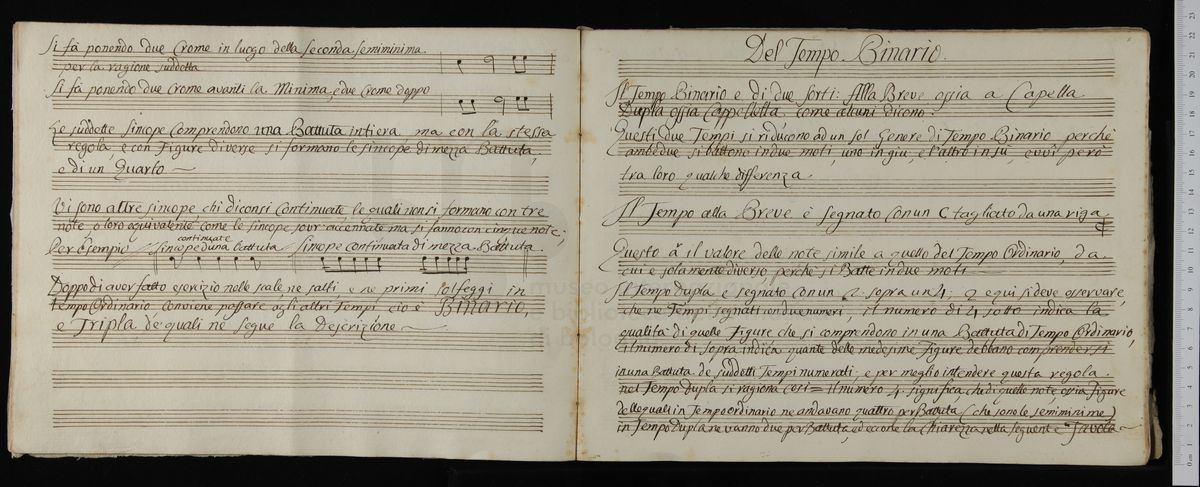 Si fà ponendo due Crome in luogo della seconda semiminima
per la ragione suddetta
Si fà ponendo due Crome avanti la Minima, e due Crome doppo
Le suddette sincope Comprendono una Battuta intiera, ma con la stessa
regola, e con Figure diverse si formano le sincope di mezza Battuta,
e di un Quarto
Vi sono altre sincope, chi diconsi Continuate, le quali non si formano con tre
note, o loro equivalente come le sincope sour'accennate ma si fanno con cinque note;
Per esempio
continuate
sincope d'una battuta
sincope continuata di mezza Battuta
Doppo di aver fatto esercizio nelle scale, ne salti, e ne primi solfeggi in
tempo Ordinario, conviene passare agli altri Tempi, cio è Binario,
e Tripla de quali ne segue la Descrizione
Del Tempo Binario.
Il Tempo Binario e di due sorti: Alla Breve ossia a Capella
Dupla ossia Cappelletta, come alcuni dicono:
Questi due Tempi si riducono ad un sol Genere di Tempo Binario, perche
ambedue si battono in due moti, uno in giu, e l'altro in sù, evvi però
tra loro qualche differenza
Il Tempo alla Breve è segnato con un C tagliato da una riga
Questo à il valore delle note simile a quello del Tempo Ordinario, da
cui e solamente diverso, perche si Batte in due moti
Il Tempo Dupla è segnato con un 2 sopra un 4; e qui si deve osservare,
che ne Tempi segnati con due numeri, il numero di 4 sotto indica la
qualità di quelle Figure che si comprendono in una Battuta di Tempo Ordinario,
il numero di sopra indica quante delle medesime Figure debbano comprendersi
in una Battuta de suddetti Tempi numerati; e per meglio intendere questa regola
nel Tempo Dupla si ragiona cosi = il numero 4 significa, che di quelle note, ossia Figure
delle quali in Tempo ordinario ne andavano quattro per Battuta (che sono le semiminime)
in Tempo Dupla ne vanno due per Battuta, ed eccone la Chiarezza nella seguente Tavola